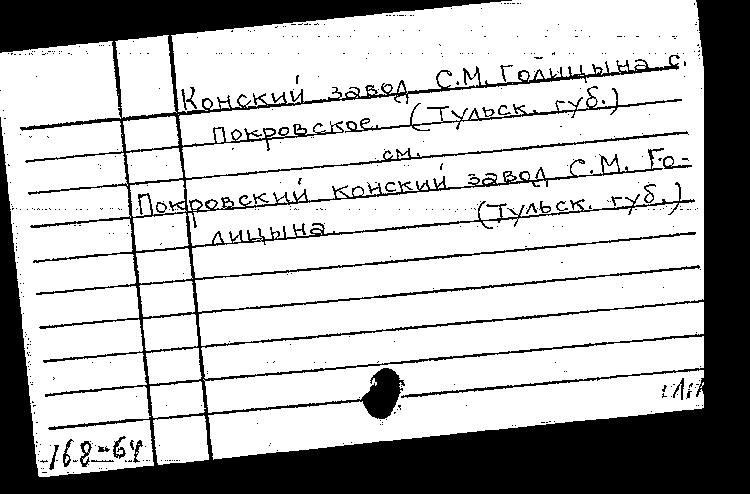 Конский завод С.М. Голицына с.
Покровское. (Тульск. губ.)
см.
Покровский конский завод С.М. Го-
лицына (Тульск. губ.)
168-64